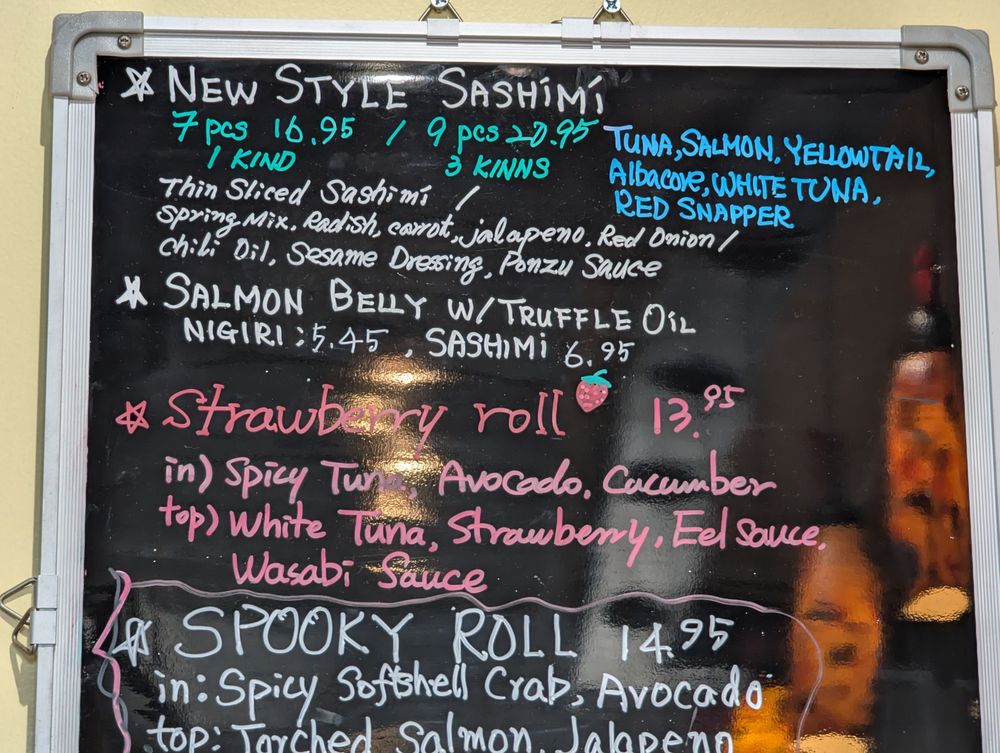 ☆ NEW STYLE SASHIMI
7 pcs 16.95 / 9 pcs 20.95
1 KIND 3 KINNS
TUNA, SALMON, YELLOWTAIL,
Albacore, WHITE TUNA,
RED SNAPPER
Thin Sliced Sashimi /
Spring Mix, Radish, carrot, jalapeno, Red Onion /
Chili Oil, Sesame Dressing, Ponzu Sauce
☆ SALMON BELLY W/ TRUFFLE OIL
NIGIRI: 5.45, SASHIMI 6.95
☆ Strawberry roll 13.95
in) Spicy Tuna, Avocado, Cucumber
top) White Tuna, Strawberry, Eel Sauce,
Wasabi Sauce
☆ SPOOKY ROLL 14.95
in: Spicy Softshell Crab, Avocado
top: Torched Salmon, Jalapeno